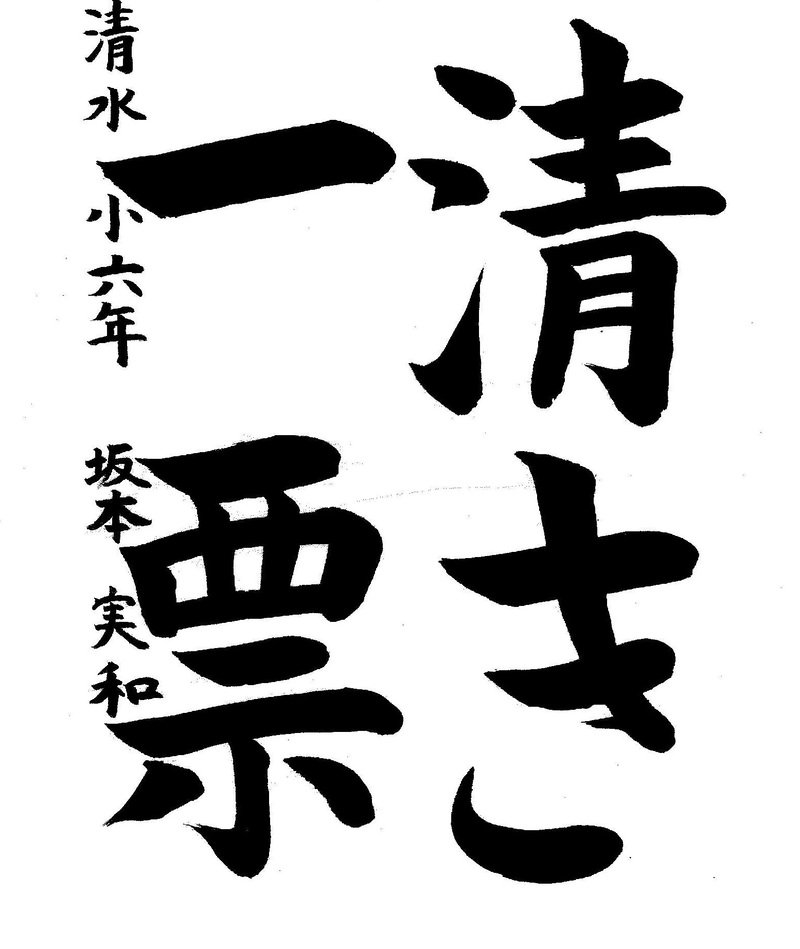 清き
一票
清水小六年 坂本 実和